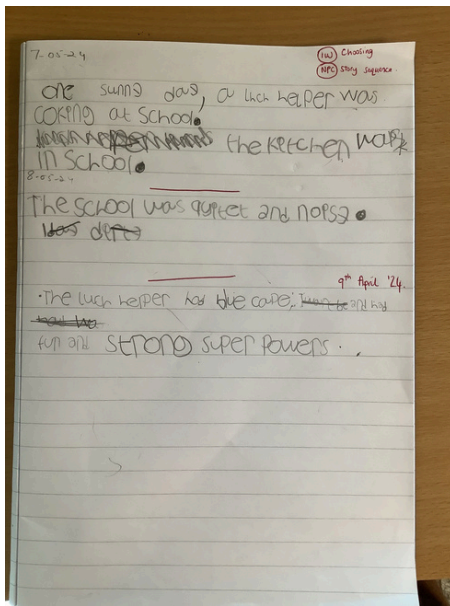 7-05-24
IW Choosing
NPC Story sequence.
One sunng dag, a luch helper was
coking at School.
the kitchen was
in School.
8-05-24
The school was quitet and noisg.
was
9th April '24.
·The luch helper had blue cape. and had
fun and strong super powers.